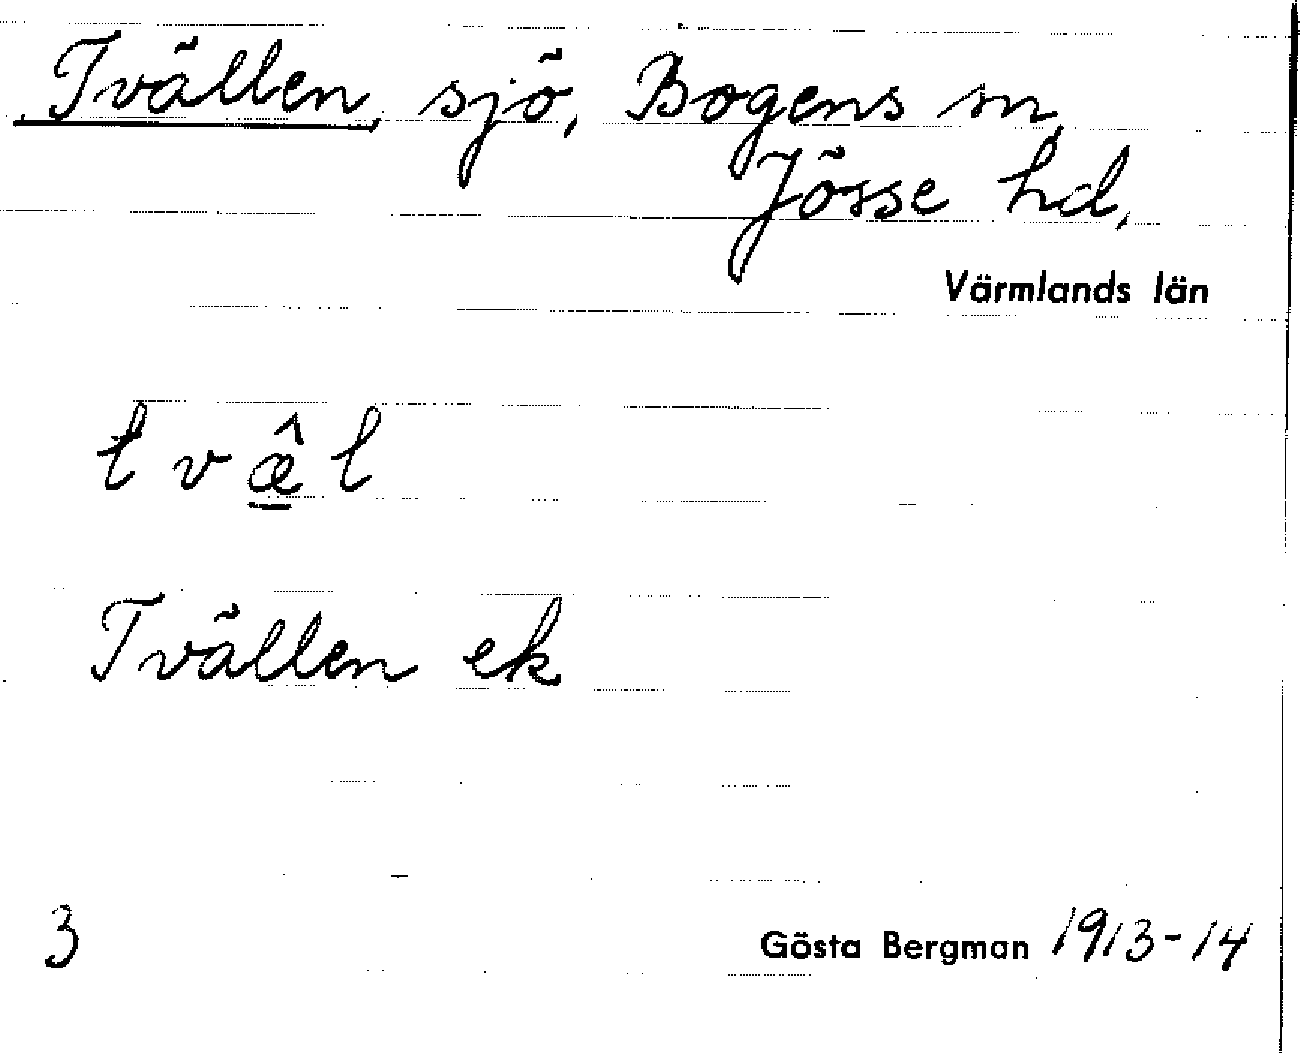 Tvällen, sjö, Bogens sn,
Jösse hd,
Värmlands län
t v æ̂ l
Tvällen ek
3
Gösta Bergman 1913-14